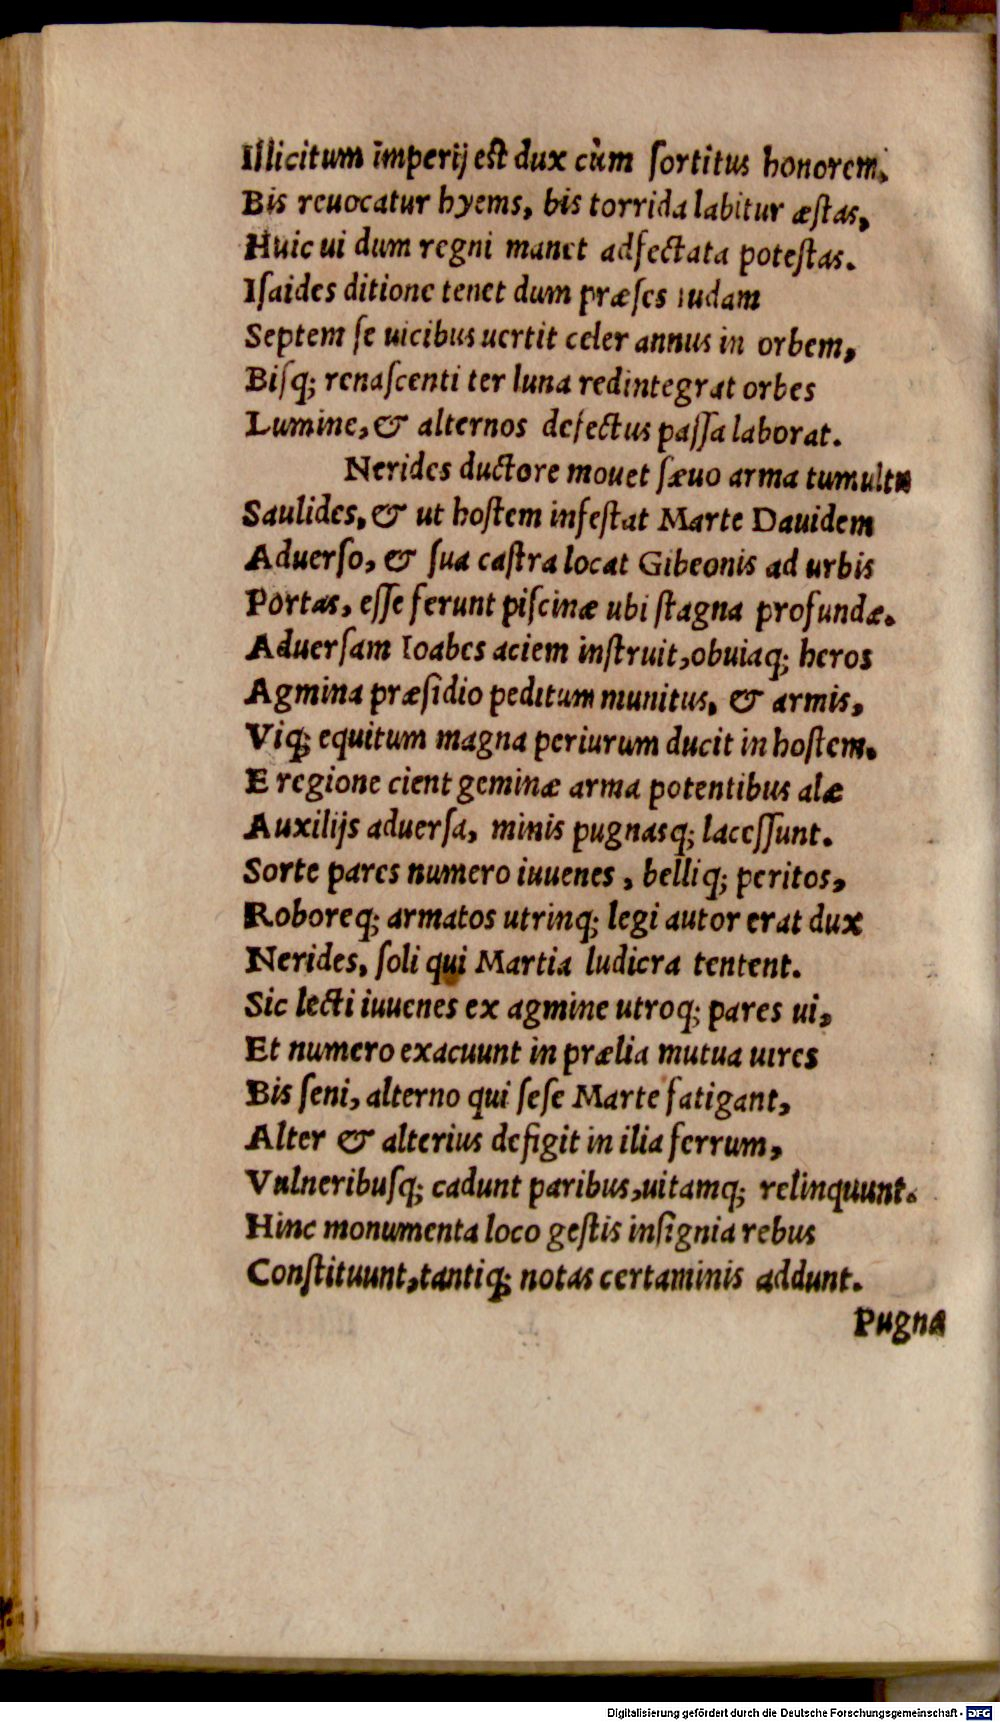 Illicitum imperij est dux cùm ſortitus honorem,
Bis reuocatur hyems, bis torrida labitur æſtas,
Huic ui dum regni manet adfectata poteſtas.
Iſaides ditione tenet dum præſes iudam
Septem ſe uicibus uertit celer annus in orbem,
Biſq; renaſcenti ter luna redintegrat orbes
Lumine, & alternos defectus paſſa laborat.
Nerides ductore mouet ſæuo arma tumultu
Saulides, & ut hoſtem infeſtat Marte Dauidem
Aduerſo, & ſua caſtra locat Gibeonis ad urbis
Portas, eſſe ferunt piſcinæ ubi ſtagna profundæ.
Aduerſam Ioabes aciem inſtruit, obuiaq; heros
Agmina præſidio peditum munitus, & armis,
Viq; equitum magna periurum ducit in hoſtem.
E regione cient geminæ arma potentibus alæ
Auxilijs aduerſa, minis pugnasq; laceſſunt.
Sorte pares numero iuuenes, belliq; peritos,
Roboreq; armatos utrinq; legi autor erat dux
Nerides, ſoli qui Martia ludicra tentent.
Sic lecti iuuenes ex agmine utroq; pares ui,
Et numero exacuunt in prælia mutua uires
Bis ſeni, alterno qui ſeſe Marte fatigant,
Alter & alterius defigit in ilia ferrum,
Vulneribuſq; cadunt paribus, uitamq; relinquunt.
Hinc monumenta loco geſtis inſignia rebus
Conſtituunt, tantiq; notas certaminis addunt.
Pugna
Digitalisierung gefördert durch die Deutsche Forschungsgemeinschaft - DFG